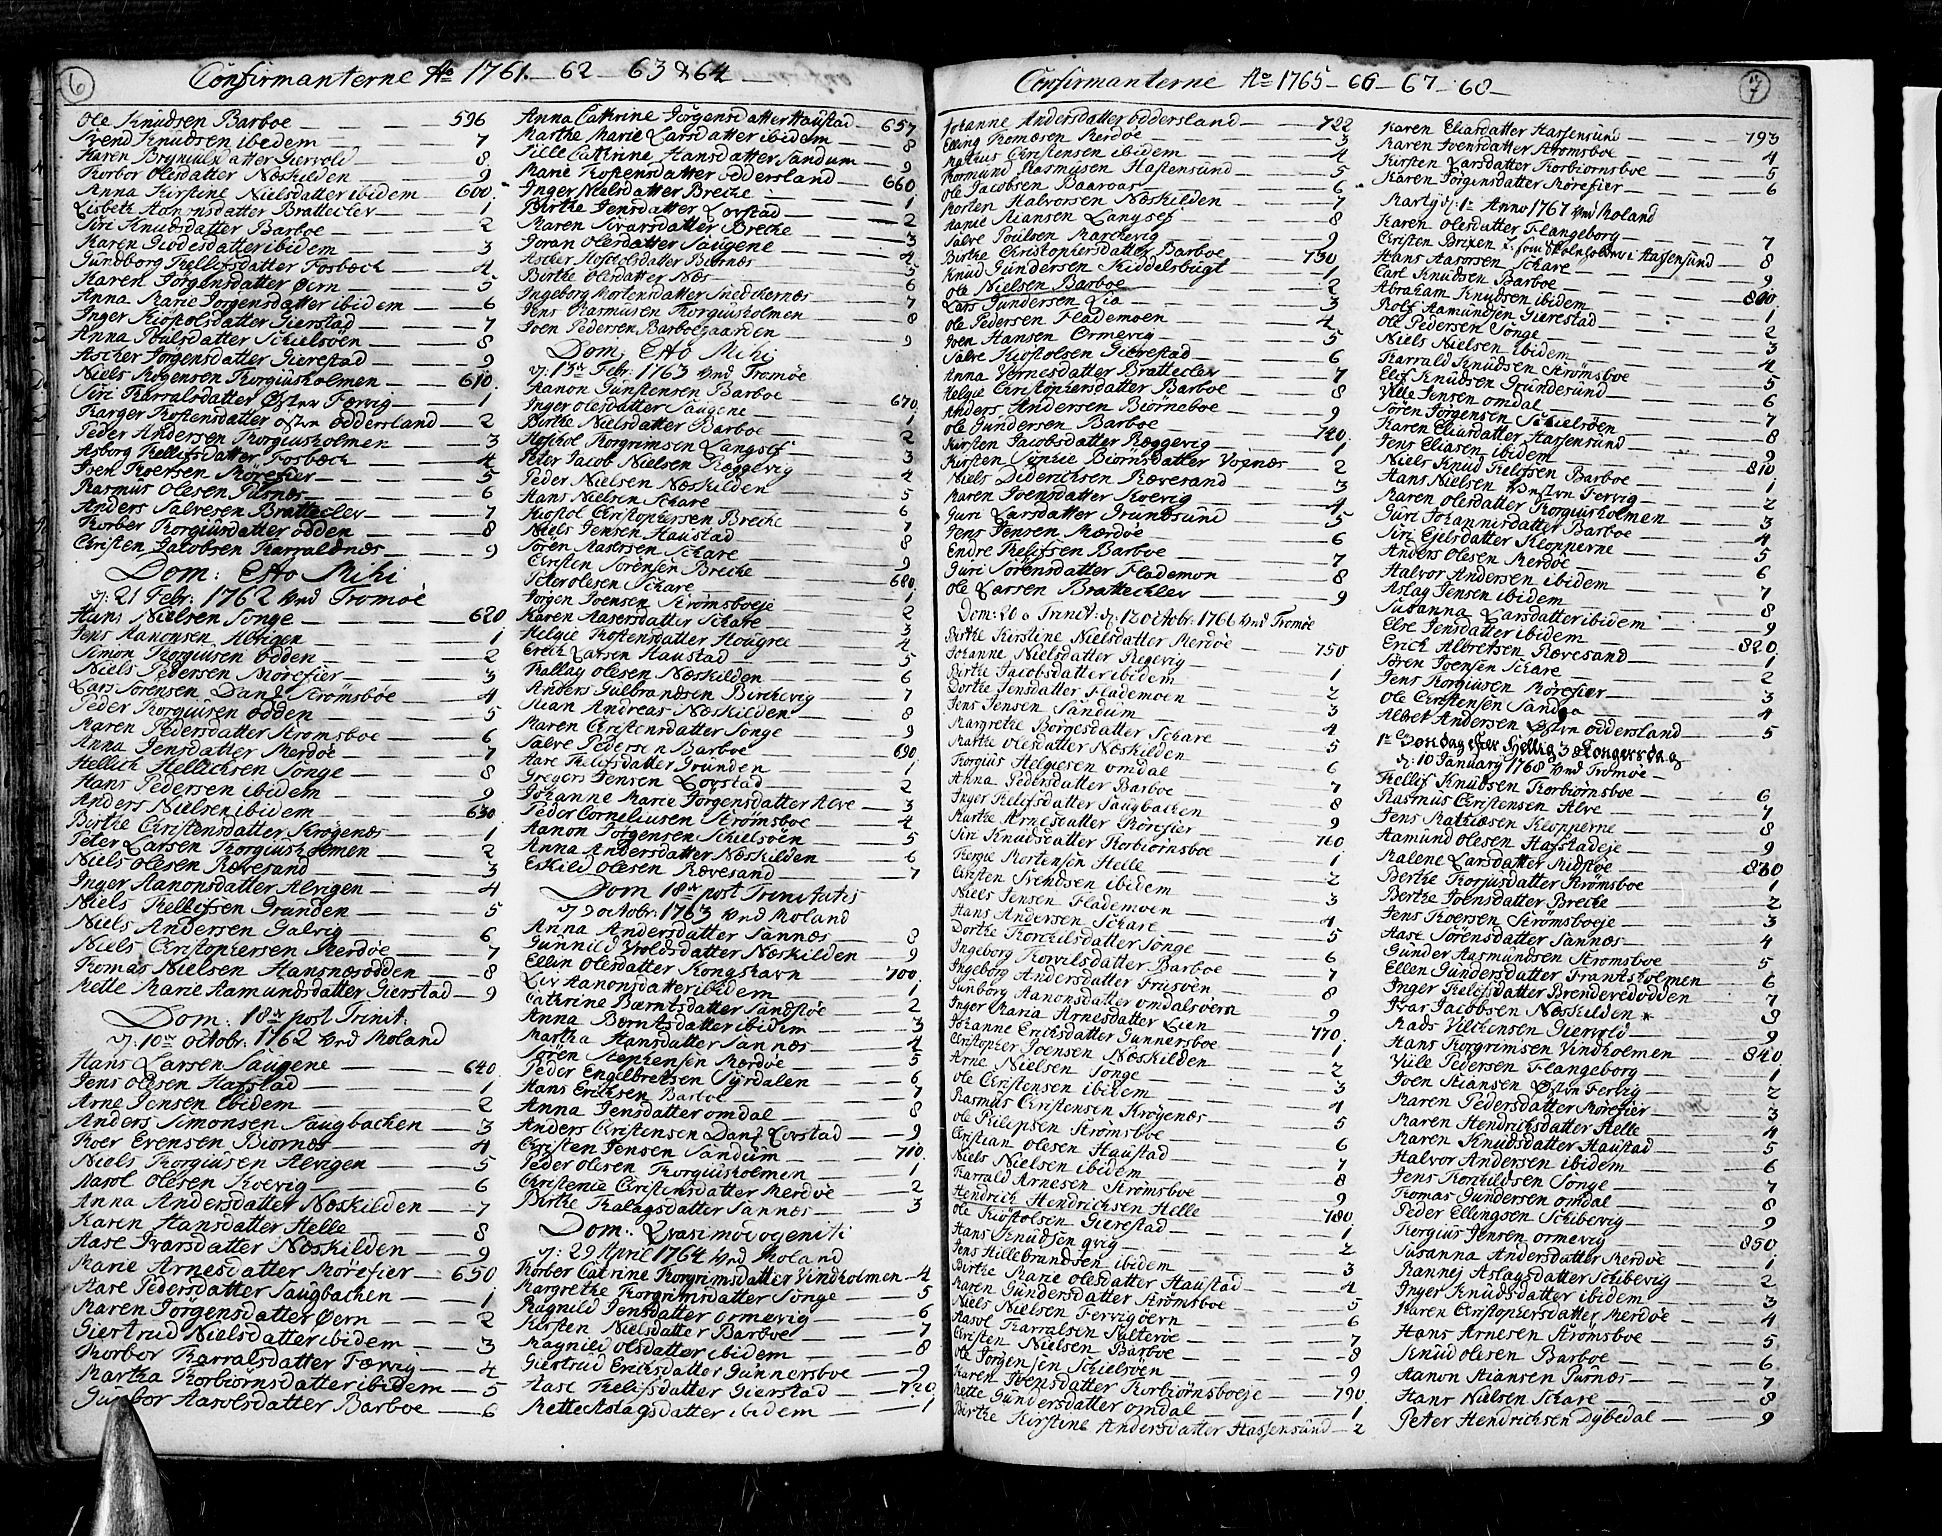 6
Confirmanterne Ao 1761 – 62 – 63 & 64
Ole Knudsen Barboe – 596
Svend Knudsen ibidem – 7
Karen Bryniulsdatter Giervold – 8
Torbor Olesdatter Næskilden – 9
Anna Kirstine Nielsdatter ibidem – 600
Lisbeth Aanonsdatter Brattecler – 1
Siri Knudsdatter Barboe – 2
Karen Giodesdatter ibidem – 3
Gundborg Tellefsdatter Fosbæch – 4
Karen Jorgensdatter Øern – 5
Anna Marie Jorgensdatter ibidem – 6
Inger Kiostolsdatter Gierstad – 7
Anna Poulsdatter Schielsöen – 8
Ascher Jorgensdatter Gierestad – 9
Niels Mogensen Torgiusholmen – 610
Siri Tarralsdatter Østre Fervig – 1
Targer Tostensdatter østre oddersland – 2
Peder Andersen Torgiusholmen – 3
Asborg Tellefsdatter Fosbæch – 4
Iven Thoersen Mörefier – 5
Rasmus Olesen Pusnæs – 6
Anders Salvesen Brattecler – 7
Torber Torgiusdatter Odden – 8
Christen Jacobsen Tarraldnæs – 9
Dom: Esto Mihi
d: 21 Febr: 1762 ved Tromöe
Hans Nielsen Songe – 620
Jens Aanonsen Alvigen – 1
Simon Torgiusen Odden – 2
Niels Pedersen Morefier – 3
Lars Sorensen Dan Strömsböe – 4
Peder Torgiusen Odden – 5
Maren Pedersdatter Stromsboe – 6
Anna Jensdatter Merdöe – 7
Hellich Hellichsen Songe – 8
Hans Pedersen ibidem – 9
Anders Nielsen ibidem – 630
Birthe Christensdatter Krögenæs – 1
Peter Larsen Torgiusholmen – 2
Niels Olesen Rævesand – 3
Inger Aanonsdatter Alvigen – 4
Niels Tellefsen Grunden – 5
Niels Andersen Galvig – 6
Niels Christophersen Merdöe – 7
Thomas Nielsen Hansnæsodden – 8
Mette Marie Aamundsdatter Gierstad – 9
Dom: 18de post Trinit:
d: 10de octobr: 1762 ved Moland
Hans Larsen Saugene – 640
Jens Olesen Hafstad – 1
Arne Jensen ibidem – 2
Anders Simonsen Saugbachen – 3
Roer Evensen Biornæs – 4
Niels Torgiusen Alvigen – 5
Aasol Olesen Koevig – 6
Anna Andersdatter Næskilden – 7
Karen Hansdatter Helle – 8
Aase Ivarsdatter Næskilden – 9
Marie Arnesdatter Mörefier – 650
Aase Pedersdatter Saugbachen – 1
Maren Jorgensdatter Øern – 2
Giertrud Nielsdatter ibidem – 3
Torbor Tarralsdatter Færvig – 4
Martha Torbiörnsdatter ibidem – 5
Gunbor Aasolsdatter Barboe – 6
Anna Cathrine Jorgensdatter Haustad – 657
Marthe Marie Larsdatter ibidem – 8
Sille Cathrine Hansdatter Sandum – 9
Marie Tostensdatter oddersland – 660
Inger Nielsdatter Breche – 1
Birthe Jensdatter Lovstad – 2
Maren Ivarsdatter Breche – 3
Joran Olesdatter Saugene – 4
Ascher Aslaksdatter Biornæs – 5
Berthe Olesdatter Næs – 6
Ingeborg Mortensdatter Snechernæs – 7
Jens Rasmusen Torgiusholmen – 8
Joen Pedersen Barboegaarden – 9
Dom: Esto Mihi
d: 13de Febr: 1763 ved Tromöe
Aanon Gunstensen Barboe – 670
Inger Olesdatter Saugene – 1
Birthe Nielsdatter Barboe – 2
Torgrimsen Langsef – 3
Peter Jacob Nielsen Ræggevig – 4
Peder Nielsen Næskilden – 5
Hans Nielsen Schare – 6
Kiostol Christophersen Breche – 7
Niels Jensen Haustad – 8
Sören Aasersen Schare – 9
Christen Sorensen Breche – 680
Peter Olesen Schare – 1
Jorgen Joensen Strömsboeje – 2
Karen Aasersdatter Schare – 3
Helgie Tostensdatter Hougree – 4
Erich Larsen Haustad – 5
Tallag Olesen Næskilden – 6
Anders Gulbrandsen Birchevig – 7
Stian Andreas Næskilden – 8
Maren Christensdatter Songe – 9
Salve Pedersen Barboe – 690
Aase Tellefsdatter Grunden – 1
Gregers Jensen Lovstad – 2
Johanne Marie Jorgensdatter Alve – 3
Peder Corneliusen Strömsboe – 4
Aanon Jorgensen Schielsöen – 5
Anna Andersdatter Næskilden – 6
Eskild Olesen Rævesand – 7
Dom 18de post Trinitatis
d: 2 octobr: 1763 ved Moland
Anna Andersdatter Sannæs – 8
Gunnild Yvoldsdatter Næskilden – 9
Ellen Olesdatter Kongshavn – 700
Liv Aanonsdatter ibidem – 1
Cathrine Bærntsdatter Sandstöe – 2
Anna Berntsdatter ibidem – 3
Martha Hansdatter Sannæs – 4
Sören Stephensen Merdöe – 5
Peder Engelbretsen Syrdalen – 6
Hans Erichsen Barboe – 7
Anna Jensdatter omdal – 8
Anders Christensen Dan Lovstad – 9
Christen Jensen Sandum – 710
Peder Olesen Torgiusholmen – 1
Christense Christensdatter Merdöe – 2
Birthe Thalagsdatter Sannæs – 3
Dom: Qvasimodogeniti
d: 29 April 1764 ved Moland
Torber Catrine Torgrimsdatter Vindholmen – 4
Margrethe Torgrimsdatter Songe – 5
Ragnild Jensdatter ormevig – 6
Kirsten Nielsdatter Barboe – 7
Magnild Olsdatter ibidem – 8
Giertrud Erichsdatter Gunnersboe – 9
Aase Tellefsdatter Gierstad – 720
Mette Aslagsdatter ibidem – 1
7
Confirmanterne Ao 1765 – 66 – 67 – 68 –
Johanne Andersdatter oddersland – 722
Elling Thomæsen Merdöe – 3
Mathius Christensen ibidem – 4
Thormund Rasmusen Hastensund – 5
Ole Jacobsen Baaroas – 6
Morten Halvorsen Næskilden – 7
Marie Stiansen Langsef – 8
Salve Poulsen Marchevig – 9
Birthe Christophersdatter Barboe – 730
Knud Gundersen Kiddelsbugt – 1
Ole Nielsen Barboe – 2
Lars Gundersen Lia – 3
Ole Pedersen Flademoen – 4
Iven Hansen Ormevig – 5
Salve Kiostolsen Gierestad – 6
Anna Vernesdatter Brattecler – 7
Helgie Christophersdatter Barboe – 8
Anders Andersen Biörneboe – 9
Ole Gundersen Barboe – 740
Kirsten Jacobsdatter Ræggevig – 1
Kirsten Sophie Biörnsdatter Vognæs – 2
Niels Diderichsen Rævesand – 3
Maren Joensdatter Koevig – 4
Guri Larsdatter Grundsund – 5
Jens Jensen Mærdöe – 6
Endre Tellefsen Barboe – 7
Guri Sorensdatter Flademon – 8
Ole Larsen Brattechlev – 9
Dom: 20 a Trinit: d: 12 octobr: 1766 ved Tromöe
Birthe Kirstine Nielsdatter Merdöe – 750
Johanne Nielsdatter Regevig – 1
Birthe Jacobsdatter ibidem
Dorthe Jensdatter Flademoen – 2
Jens Jensen Sandum – 3
Margrethe Börgesdatter Schare – 4
Marthe Olesdatter Næskilden – 5
Torgius Helgiesen omdal – 6
Anna Pedersdatter Barboe – 7
Inger Tellefsdatter Saugbachen – 8
Marthe Arnesdatter Mörefier – 9
Siri Knudsdatter Torbiornsboe – 760
Tergie Mortensen Helle – 1
Christen Svendsen ibidem – 2
Niels Jensen Flademoen – 3
Hans Andersen Schare – 4
Dorthe Torchilsdatter Songe – 5
Ingeborg Torvilsdatter Barboe – 6
Ingeborg Andersdatter Frisöen – 7
Gunborg Aanonsdatter omdalsöern – 8
Inger Maria Arnesdatter Lien – 9
Johanne Erichsdatter Gunnersboe – 770
Christopher Joensen Næskilden – 1
Arne Nielsen Songe – 2
Ole Christensen ibidem – 3
Rasmus Christensen Krögenæs – 4
Ole Philipsen Strömsboe – 5
Christian Olesen Haustad – 6
Niels Nielsen ibidem – 7
Tarrald Arnesen Strömsboe – 8
Hendrich Hendrichsen Helle – 9
Ole Kiöstolsen Gierestad – 780
Hans Knudsen qvig – 1
Jens Hillebrandsen ibidem – 2
Birthe Marie Olesdatter Haustad – 3
Maren Gundersdatter Strömsboe – 4
Niels Nielsen Fervigöern – 5
Aasol Tarralsen Salteröe – 6
Christen Nielsen Barboe – 7
Ole Jorgensen Schielsöen – 8
Karen Ivensdatter Torbiörnsboeje – 9
Mette Gundersdatter omdal – 790
Birthe Kirstine Andersdatter Hassensund – 2
Karen Eliasdatter Hassensund – 793
Maren Joensdatter Stromsboe – 4
Kirsten Larsdatter Torbiornsboe – 5
Karen Jörgensdatter Mörefier – 6
d: 1te Anno 1767 ved Moland
Karen Olesdatter Flangeborg – 7
Christen Brixen Skoleholder i Hassensund – 8
Hans Aasorsen Schare – 9
Carl Knudsen Barboe – 800
Abraham Knudsen ibidem – 1
Rolf Aamundsen Gierestad – 2
Ole Pedersen Songe – 3
Niels Nielsen ibidem – 4
Tarrald Knudsen Strömsboe – 5
Elef Knudsen Grundesund – 6
Ville Jensen omdal – 7
Sören Jörgensen Schielsöen – 8
Karen Eliasdatter Hassensund – 9
Jens Eliasen ibidem – 810
Niels Knud Tellefsen Barboe – 1
Hans Nielsen Vestre Fervig – 2
Maren Olesdatter Torgiusholmen – 3
Guri Johannisdatter Barboe – 4
Siri Ejelsdatter Klopperne – 5
Anders Olesen Merdöe – 6
Halvor Andersen ibidem – 7
Aslag Jensen ibidem – 8
Susanna Larsdatter ibidem – 9
Else Jensdatter ibidem – 820
Erich Albretsen Rævesand – 1
Sören Joensen Schare – 2
Jens Torgiusen Mörefier – 3
Ole Christensen Sandga – 4
Albret Andersen Østre oddersland – 5
1te Söndag efter Hellig 3 Kongersdag
d: 10 January 1768 ved Tromöe –
Tellef Knudsen Torbiornsboe – 6
Rasmus Christensen Alve – 7
Jens Mathiæsen Klopperne – 8
Aamund Olesen Hafstadeje – 9
Malene Larsdatter Midtstöe – 830
Berthe Torjusdatter Strömsboe – 1
Berthe Joensdatter Breche – 2
Jens Roersen Strömsboeje – 3
Aase Sörensdatter Sannæs – 4
Gunder Aasmundsen Stromsboe – 5
Ellen Gundersdatter Frantsholmen – 6
Inger Tellefsdatter Brenderedodden – 7
Ivar Jacobsen Næskilden * – 9
Mads Vilchensen Giervold – 9
Hans Torgrimsen Vindholmen – 840
Ville Pedersen Flangeborg – 1
Joen Stiansen Østre Fervig – 2
Maren Pedersdatter Mörefier – 3
Maren Hendrichsdatter Helle – 4
Maren Knudsdatter Haustad – 5
Halvor Andersen ibidem – 6
Jens Torchildsen Songe – 7
Tomas Gundersen omdal – 8
Peder Ellingsen Schibevig – 9
Torgius Jensen ormevig – 850
Susanna Andersdatter Merdöe – 1
Rannej Aslagsdatter Schibevig – 2
Inger Knudsdatter ibidem – 3
Karen Christophersdatter Merdöe – 4
Hans Arnesen Strömsboe – 5
Knud Olesen Barboe – 6
Aanon Stiansen Pusnæs – 7
Hans Nielsen Schare – 8
Peter Hendrichsen Dybedal – 9